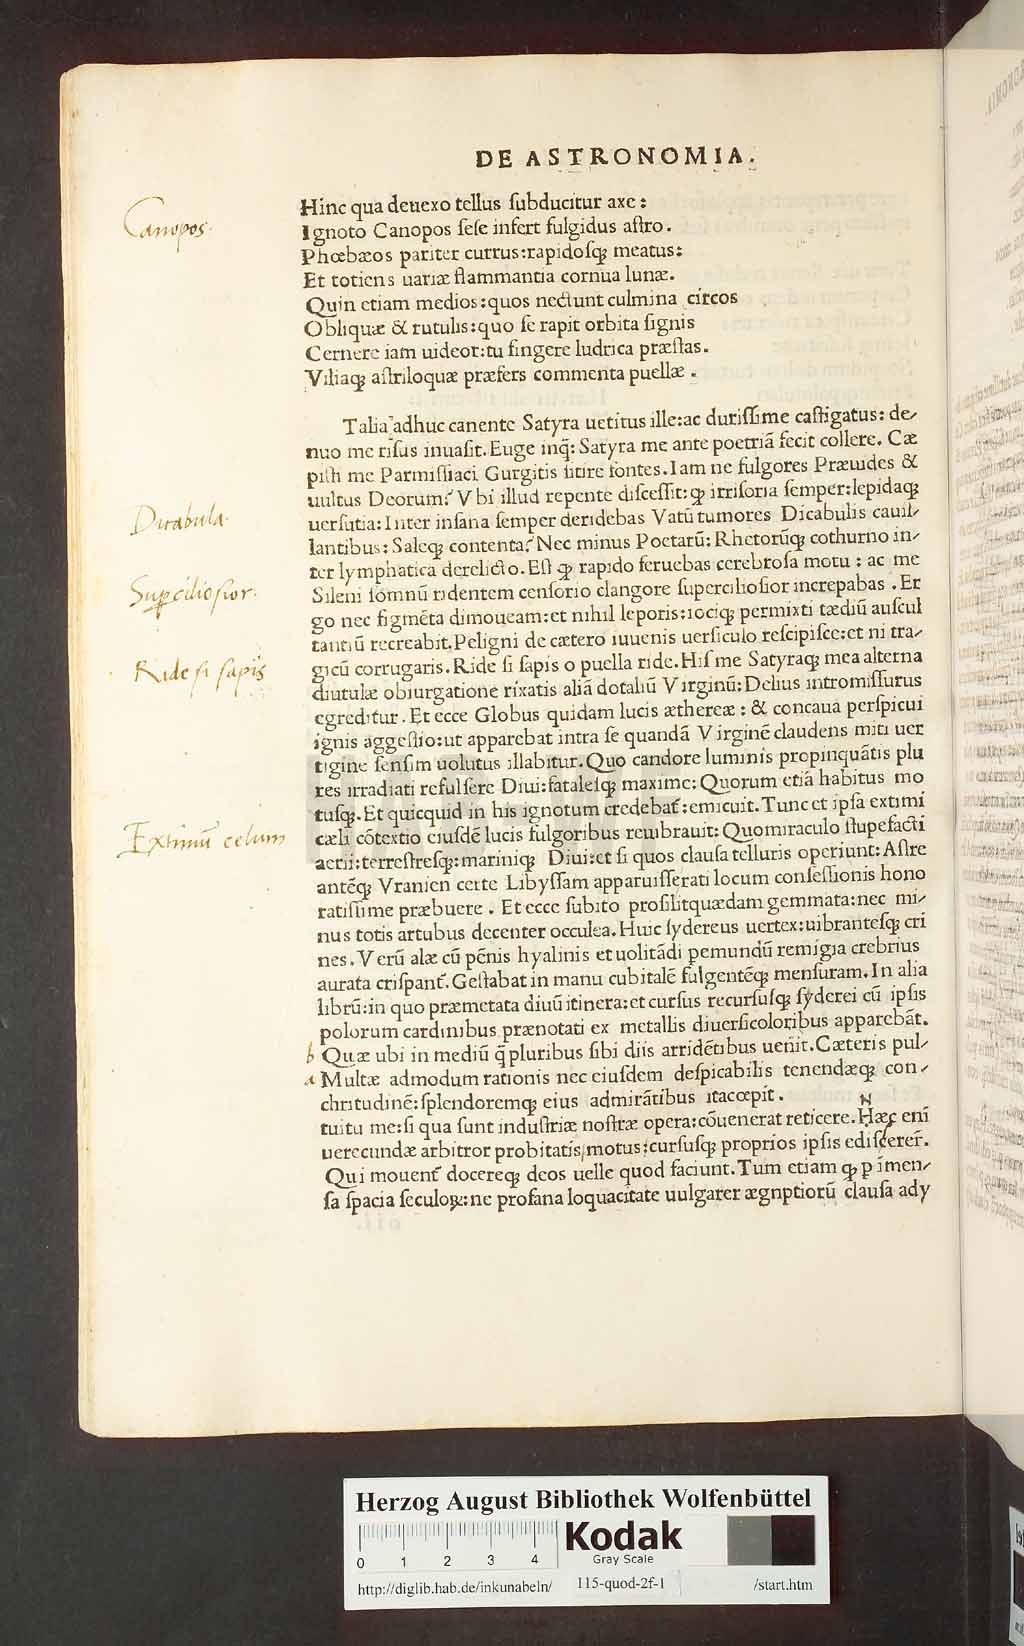 DE ASTRONOMIA.
Canopos.
Hinc qua deuexo tellus ſubducitur axe:
Ignoto Canopos ſeſe infert fulgidus aſtro.
Phœbæos pariter currus: rapidoſqꝫ meatus:
Et totiens uariæ flammantia cornua lunæ.
Quin etiam medios: quos nectunt culmina circos
Obliquæ & rutulis: quo ſe rapit orbita ſignis
Cernere iam uideor: tu fingere ludrica præſtas.
Viliaqꝫ aſtriloquæ præfers commenta puellæ.
Talia adhuc canente Satyra uetitus ille: ac duriſſime caſtigatus: de-
nuo me riſus inuaſit. Euge inq̃: Satyra me ante poetriã fecit collere. Cæ
piſti me Parmiſſiaci Gurgitis ſitire fontes. Iam ne fulgores Præuides &
uultus Deorum? Vbi illud repente diſceſſit: ꝙ irriſoria ſemper: lepidaqꝫ
Dicabula.
uerſutia: Inter inſana ſemper deridebas Vatũ tumores Dicabulis cauil-
lantibus: Saleqꝫ contenta? Nec minus Poetarũ: Rhetorũqꝫ cothurno in-
ter lymphatica derelicto. Eſt ꝙ rapido feruebas cerebroſa motu: ac me
Supciliosior.
Sileni ſomnũ ridentem cenſorio clangore ſupercilioſior increpabas. Er
go nec figmẽta dimoueam: et nihil leporis: iociqꝫ permixti tædiũ auſcul
tantiũ recreabit. Peligni de cætero iuuenis uerſiculo reſcipiſce: et ni tra-
Ride si sapis
gicũ corrugaris. Ride ſi ſapis o puella ride. Hiſ me Satyraqꝫ mea alterna
diutulæ obiurgatione rixatis aliã dotaliũ Virginũ: Delius intromiſſurus
egreditur. Et ecce Globus quidam lucis æthereæ: & concaua perſpicui
ignis aggeſtio: ut apparebat intra ſe quandã Virginẽ claudens miti uer
tigine ſenſim uolutus illabitur. Quo candore luminis propinquãtis plu
res irradiati refulſere Diui: fataleſqꝫ maxime: Quorum etiã habitus mo
tuſqꝫ. Et quicquid in his ignotum credebat̃: emicuit. Tunc et ipſa extimi
Extimũ celum
cæli cõtextio eiuſdẽ lucis fulgoribus renibrauit: Quo miraculo ſtupefacti
aerii: terreſtreſqꝫ: mariniqꝫ Diui: et ſi quos clauſa telluris operiunt: Aſtre
antẽqꝫ Vranien certe Libyſſam apparuiſſe rati locum conſeſſionis hono
ratiſſime præbuere. Et ecce ſubito proſilit quædam gemmata: nec mi-
nus totis artubus decenter occulea. Huic ſydereus uertex: uibranteſqꝫ cri
nes. Verũ alæ cũ pẽnis hyalinis et uolitãdi p̱ mundũ remigia crebrius
aurata criſpant̃. Geſtabat in manu cubitalẽ fulgentẽqꝫ menſuram. In alia
librũ: in quo præmetata diuũ itinera: et curſus recurſuſqꝫ ſyderei cũ ipſis
polorum cardinibus prænotati ex metallis diuerſicoloribus apparebãt.
b Quæ ubi in mediũ q̃ pluribus ſibi diis arridẽtibus uenit. Cæteris pul-
a Multæ admodum rationis nec eiuſdem deſpicabilis tenendæqꝫ con-
chritudinẽ: ſplendoremqꝫ eius admirãtibus ita cœpit.
tuitu me: ſi qua ſunt induſtriæ noſtræ opera: cõuenerat reticere. Hæc eni
uerecundæ arbitror probitatis, motus: curſuſqꝫ proprios ipſis ediſcerer̃.
Qui mouent̃ docereqꝫ deos uelle quod faciunt. Tum etiam ꝙ p̱ imen-
ſa ſpacia ſeculoꝝ: ne profana loquacitate uulgarer ægnptiorũ clauſa ady
Herzog August Bibliothek Wolfenbüttel
0 1 2 3 4
Kodak
Gray Scale
http://diglib.hab.de/inkunabeln/ 115-quod-2f-1 /start.htm